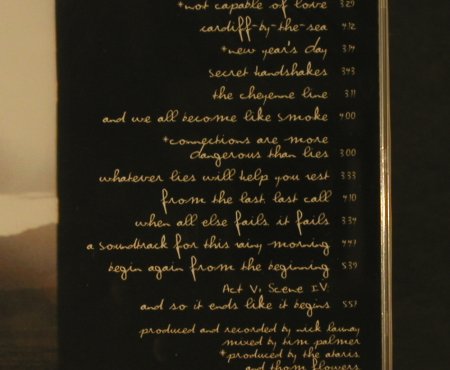 *not capable of love 3:29
cardiff-by-the-sea 4:12
*new year's day 3:14
secret handshakes 3:43
the cheyenne line 3:11
and we all become like smoke 4:00
*connections are more
dangerous than lies 3:00
whatever lies will help you rest 3:33
from the last, last call 4:10
when all else fails, it fails 3:34
a soundtrack for this rainy morning 4:47
begin again from the beginning 5:39
Act V, Scene IV:
and so it ends like it begins 5:57
produced and recorded by nick launay
mixed by tim palmer
*produced by the ataris
and thom flowers